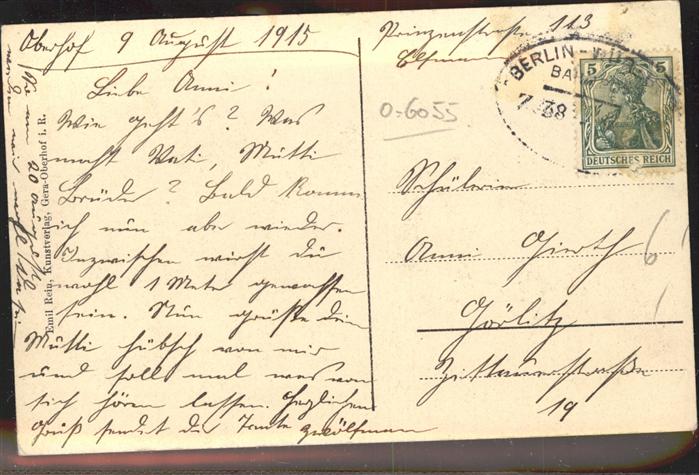 Oberhof 9 August 1915
Liebe Anni!
Wie geht's? Was
macht Vati, Mutti
Brüder? Bald komm
ich nun aber wieder.
Inzwischen wirst du
wohl 1 Meter gewachsen
sein. Nun grüße dein
Mutti hübsch von mir
und soll mal was von
sich hören lassen. Herzlichen
Gruß sendet dir Tante
Emil Rein, Kunstverlag, Gera-Oberhof i. R.
Prinzenstraße 113
BERLIN
BA
0-6055
5 5
DEUTSCHES REICH
Schülerin
Anni Gierth
Görlitz
Zittauerstraße
19